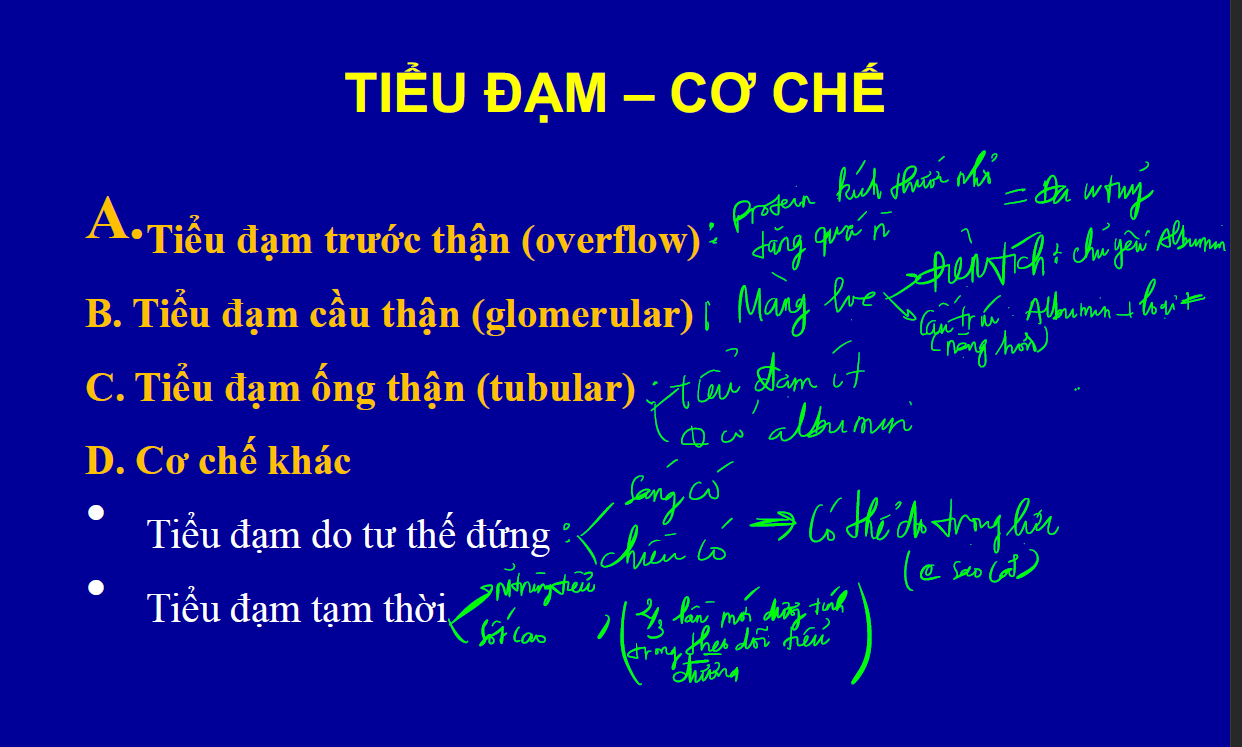 TIỂU ĐẠM – CƠ CHẾ
A. Tiểu đạm trước thận (overflow) : Protein kích thước nhỏ = Đa u tuỷ
tăng quá n
B. Tiểu đạm cầu thận (glomerular) : Màng lọc
điện tích : chủ yếu Albumin
Cấu trúc : Albumin + loại ≠
(nặng hơn)
C. Tiểu đạm ống thận (tubular) : tiểu đạm ít
có albumin
D. Cơ chế khác
• Tiểu đạm do tư thế đứng :
sáng có
chiều có
=> Có thể do trọng lực
• Tiểu đạm tạm thời
Nhiễm trùng tiểu
Sốt cao
, (2/3 lần mới dương tính
trong theo dõi tiểu
đường)